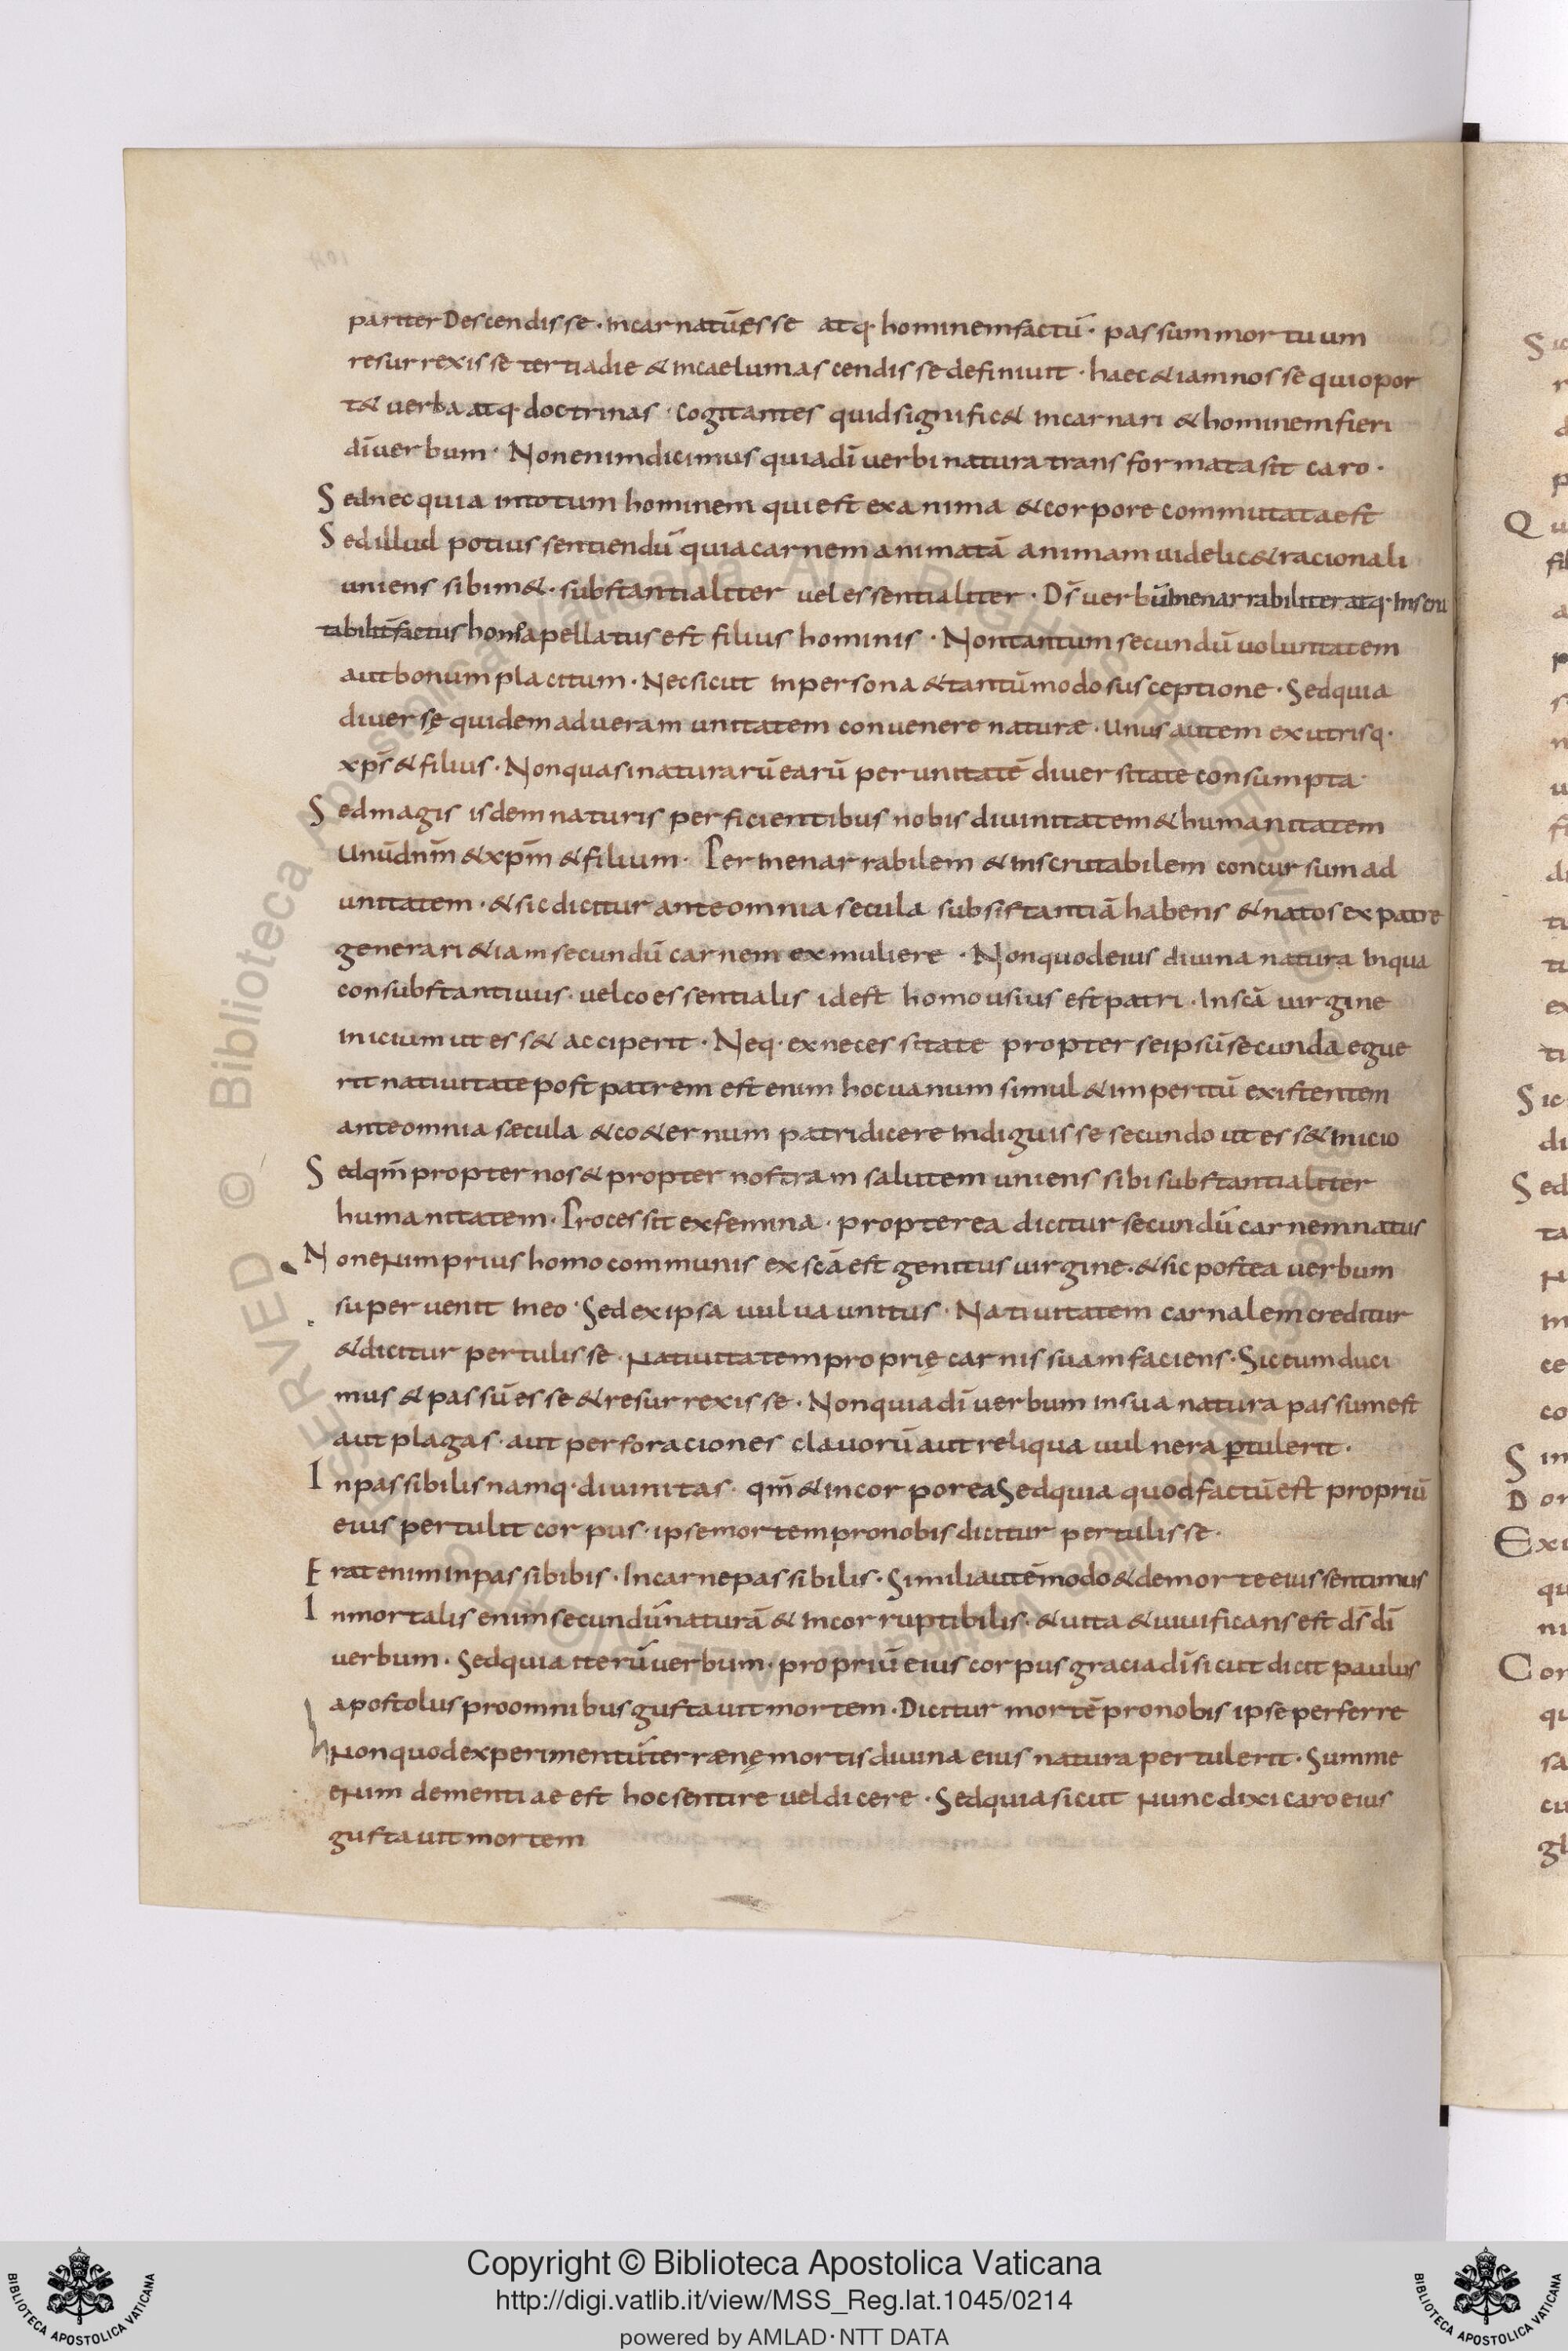 pariter Descendisse · incarnatū esse atq· hominem factū · passum mortuum
resurrexisse tertia die & incaelum ascendisse definiuit · haec & iam nosse qui opor
t& uerba atq· doctrinas · Cogitantes quid signific& incarnari & hominem fieri
dī uerbum · Non enim dicimus quia dī uerbi natura transformata sit caro ·
Sed nec quia intotum hominem qui est ex anima & corpore commutata est
Sed illud potius sentiendū quia carnem animatā animam uidelic& racionali
uniens sibim& · substantialiter uel essentialiter · Ds̄ uerbū inenarrabiliter atq· inscru
tabilit̄ factus homo apellatus est filius hominis · Non tantum secundū uoluntatem
aut bonum placitum · Nec sicut in persona & tantūmodo susceptione · Sed quia
diuersę quidem ad ueram unitatem conuenere naturæ · Unus autem ex utrisq·
xp̄s & filius · Non quasi naturarū earū per unitatē diuersitate consumpta
Sed magis isdem naturis perficientibus nobis diuinitatem & humanitatem
Unūdnm̄ & xpm̄ & filium · Per inenarrabilem & inscrutabilem concursum ad
unitatem · & sic dicitur ante omnia secula subsistantiā habens & natos ex patre
generari & iam secundū carnem ex muliere · Non quod eius diuina natura in qua
consubstantiuus · uel coessentialis id est homousius est patri · In scā uirgine
inicium ut ess& acciperit · Neq· ex necessitate propter seipsū secunda egue
rit natiuitate post patrem est enim hoc uanum simul & imperitū existentem
ante omnia sæcula & co&ernum patri dicere indiguisse secundo ut ess& inicio
Sed qm̄ propter nos & propter nostram salutem uniens sibi substantialiter
humanitatem · Processit ex femina · propterea dicitur secundū carnem natus
Non enim prius homo communis ex scā est genitus uirgine · & sic postea uerbum
superuenit in eo · Sed ex ipsa uulua unitus · Natiuitatem carnalem creditur
& dicitur pertulisse · Natiuitatem proprię carnis suam faciens · Sic eum duci
mus & passū esse & resurrexisse · Non quia dī uerbum in sua natura passum est
aut plagas · aut perforaciones clauorū aut reliqua uulnera p̱tulerit ·
Inpassibilis namq· diuinitas · qm̄ & incorporea Sed quia quod factū est propriū
eius pertulit corpus · ipse mortem pro nobis dicitur pertulisse ·
Erat enim inpassibibis · In carne passibilis · Simili autē modo & de morte eius sentimus
Inmortalis enim secundū naturā & incorruptibilis · & uita & uiuificans est ds̄ dī
uerbum · Sed quia iterū uerbum · propriū eius corpus gracia dī sicut dicit paulus
apostolus pro omnibus gustauit mortem · Dicitur mortē pro nobis ipse perferre
Non quod experimentū terrænę mortis diuina eius natura pertulerit · Summe
enim dementiae est hoc sentire uel dicere · Sed quia sicut nunc dixi caro eius
gustauit mortem
Copyright © Biblioteca Apostolica Vaticana
http://digi.vatlib.it/view/MSS_Reg.lat.1045/0214
powered by AMLAD · NTT DATA